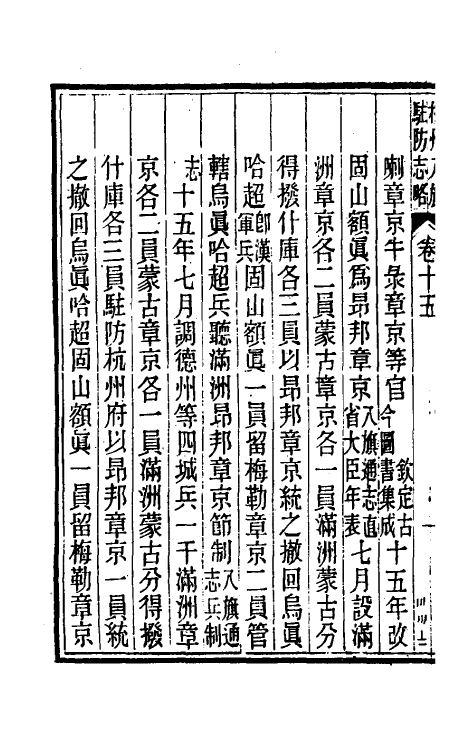 駐防志略 卷十五
喇章京牛彔章京等官欽定古今圖書集成十五年改
固山額眞爲昂邦章京八旗通志直省大臣年表七月設滿
洲章京各二員蒙古章京各一員滿洲蒙古分
得撥什庫各三員以昂邦章京統之撤回烏眞
哈超卽漢軍兵固山額眞一員留梅勒章京二員管
轄烏眞哈超兵聽滿洲昂邦章京節制八旗通志兵制
志十五年七月調德州等四城兵一千滿洲章
京各二員蒙古章京各一員滿洲蒙古分得撥
什庫各三員駐防杭州府以昂邦章京一員統
之撤回烏眞哈超固山額眞一員留梅勒章京